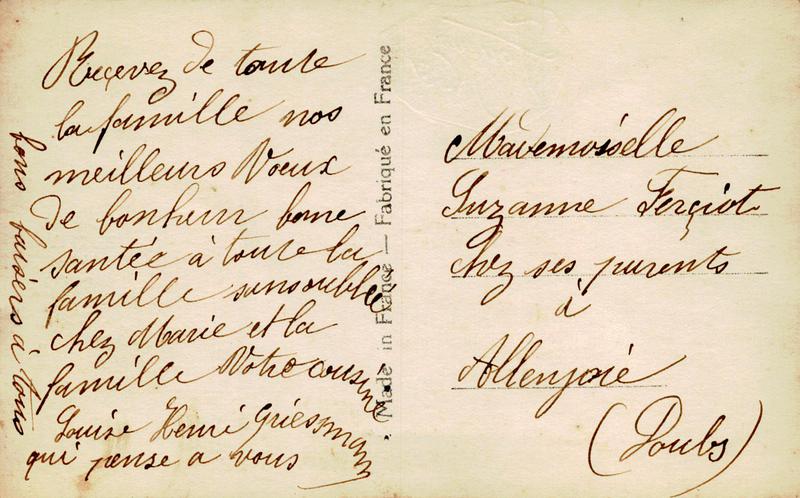 Reçevez de toute
la famille nos
meilleurs Voeux
de bonheur bone
santée à toute la
famille sansoublié
chez Marie et la
famille Votre cousine
Louise Henri Griesmann
qui pense a vous
bons baisers à tous
Made in France — Fabriqué en France
Mademoiselle
Suzanne Ferçiot
chez ses parents
à
Allenjoié
(Doubs)